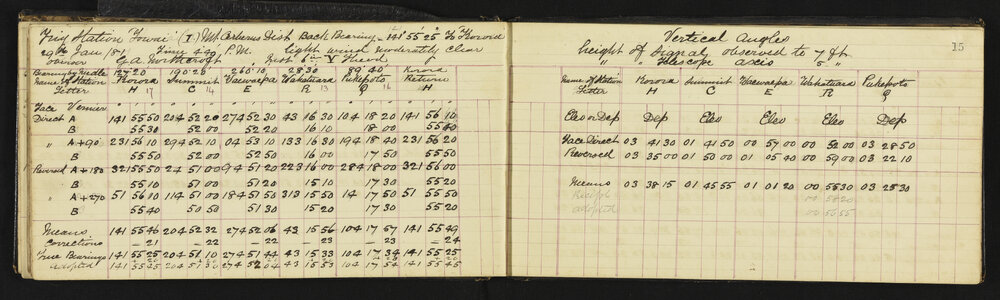 Trig Station Towai (I) Mt Cerberus Dist Back Bearing 141 55 25 To Korora
29th Jan /81 Time 4.40 P.M. light wind moderately clear
observer G A Northcroft Inst 6in V Theod
Bearing by Needle 127 20 190 20 260 10 28 30 89 40 Korora
Name of Station Korora Summit Waewaepa Wahatuara Pukepoto Return
Letter H 17 C 14 E R 13 Q 16 H
Face Vernier
Direct A 141 55 50 204 52 20 274 52 30 43 16 30 104 18 20 141 56 10
B 55 30 52 00 52 20 16 10 18 00 55 40
" A+90 231 56 10 294 52 10 04 53 10 133 16 30 194 18 40 231 56 20
B 55 50 52 00 52 50 16 00 17 50 55 50
Reversed A+180 321 55 50 24 51 00 94 51 20 223 16 00 284 18 00 321 56 00
B 55 10 51 00 51 20 15 10 17 30 55 20
" A+270 51 56 10 114 51 00 184 51 50 313 15 50 14 17 50 51 55 50
B 55 40 50 50 51 30 15 20 17 30 55 20
Means 141 55 46 204 52 32 274 52 06 43 15 56 104 17 57 141 55 49
Corrections — 21 — 22 — 22 — 23 — 23 — 24
True Bearings 141 55 25 204 51 10 274 51 44 43 15 33 104 17 34 141 55 25
adopted 141 55 45 204 51 30 274 52 04 43 15 53 104 17 54 141 55 45
15
Vertical Angles
height of Signal observed to 7 ft
" Telescope axis 5 "
Name of Station Korora Summit Waewaepa Wahatuara Pukepoto
Letter H C E R Q
Elev or Dep Dep Elev Elev Elev Dep
Face Direct 03 41 30 01 41 50 00 57 00 00 52 00 03 28 50
Reversed 03 35 00 01 50 00 01 05 40 00 59 00 03 22 10
Means 03 38 15 01 45 55 01 01 20 00 55 30 03 25 30
00 58 20
adopted 00 56 55